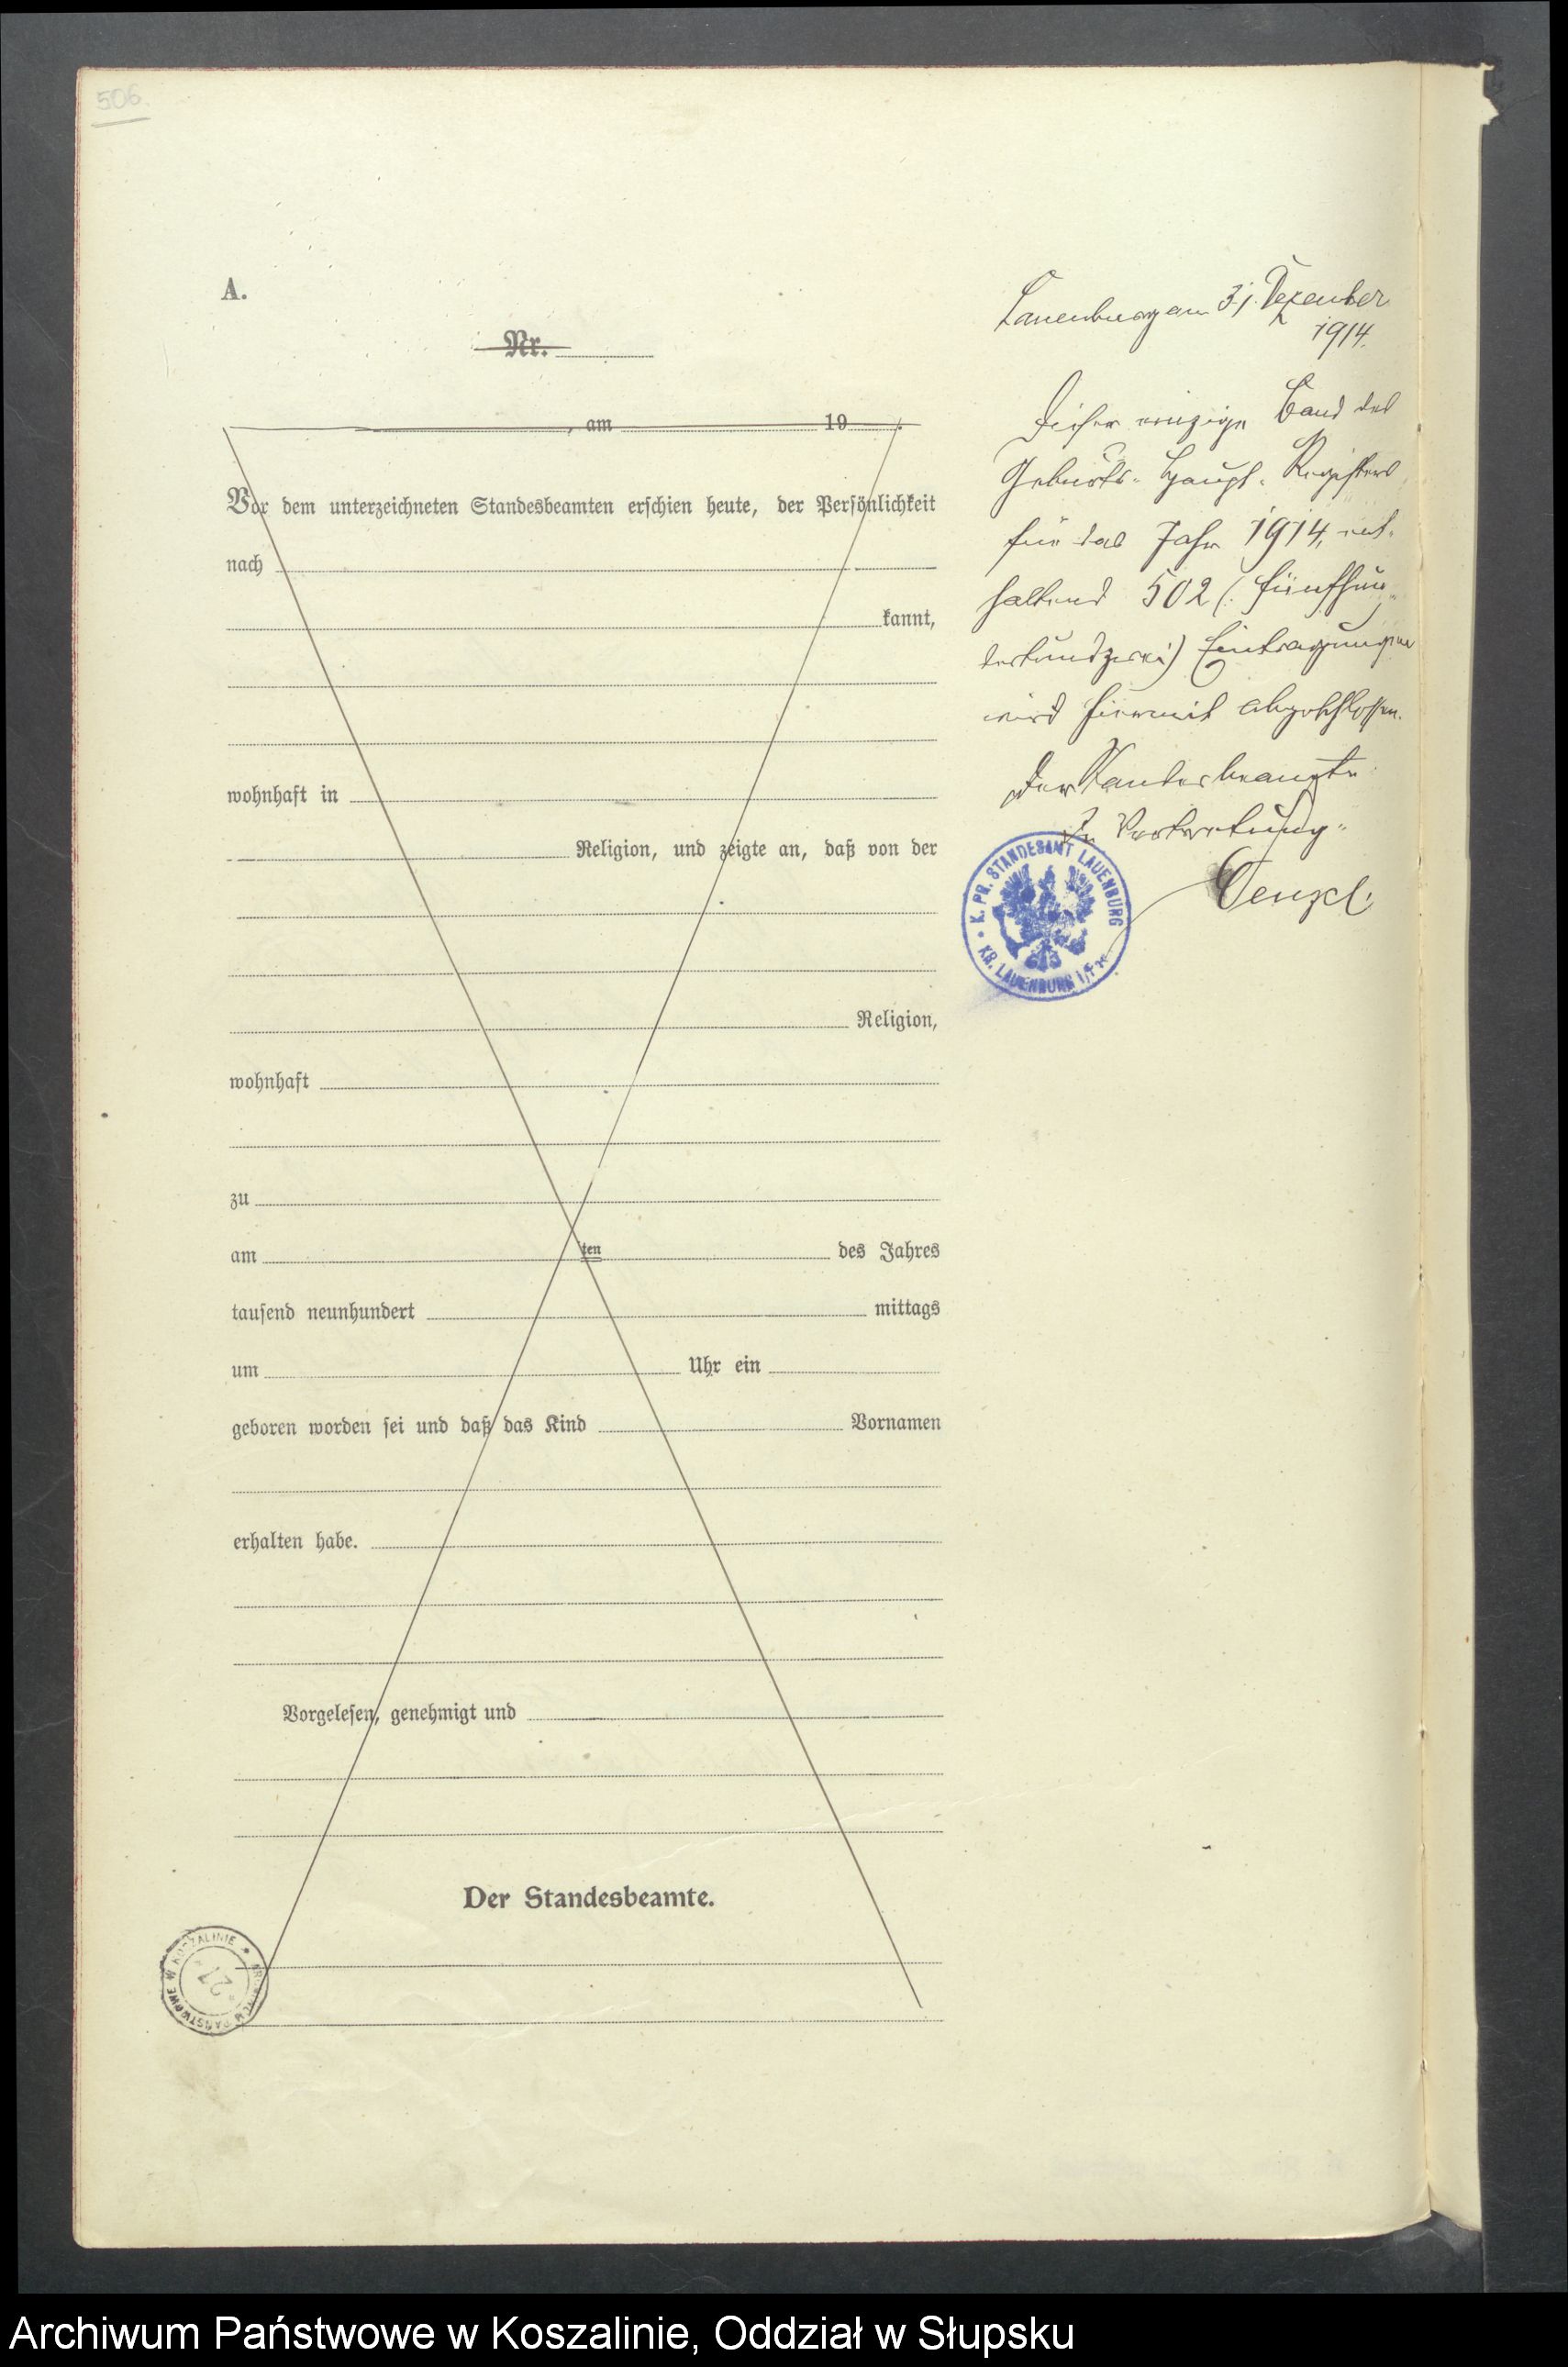 506.
A.
Nr.
, am 19 .
Vor dem unterzeichneten Standesbeamten erschien heute, der Persönlichkeit
nach
kannt,
wohnhaft in
Religion, und zeigte an, daß von der
Religion,
wohnhaft
zu
am ten des Jahres
tausend neunhundert mittags
um Uhr ein
geboren worden sei und daß das Kind Vornamen
erhalten habe.
Vorgelesen, genehmigt und
Der Standesbeamte.
Lauenburg am 31. Dezember
1914.
Dieser einzige Band des
Geburts-Haupt-Registers
für das Jahr 1914, ent-
haltend 502 (: fünfhun-
dertundzwei) Eintragungen
wird hiermit abgeschlossen.
Der Standesbeamte
In Vertretung.
K. PR. STANDESAMT LAUENBURG
KR. LAUENBURG i/P
ARCHIWUM PAŃSTWOWE W KOSZALINIE
27
Archiwum Państwowe w Koszalinie, Oddział w Słupsku